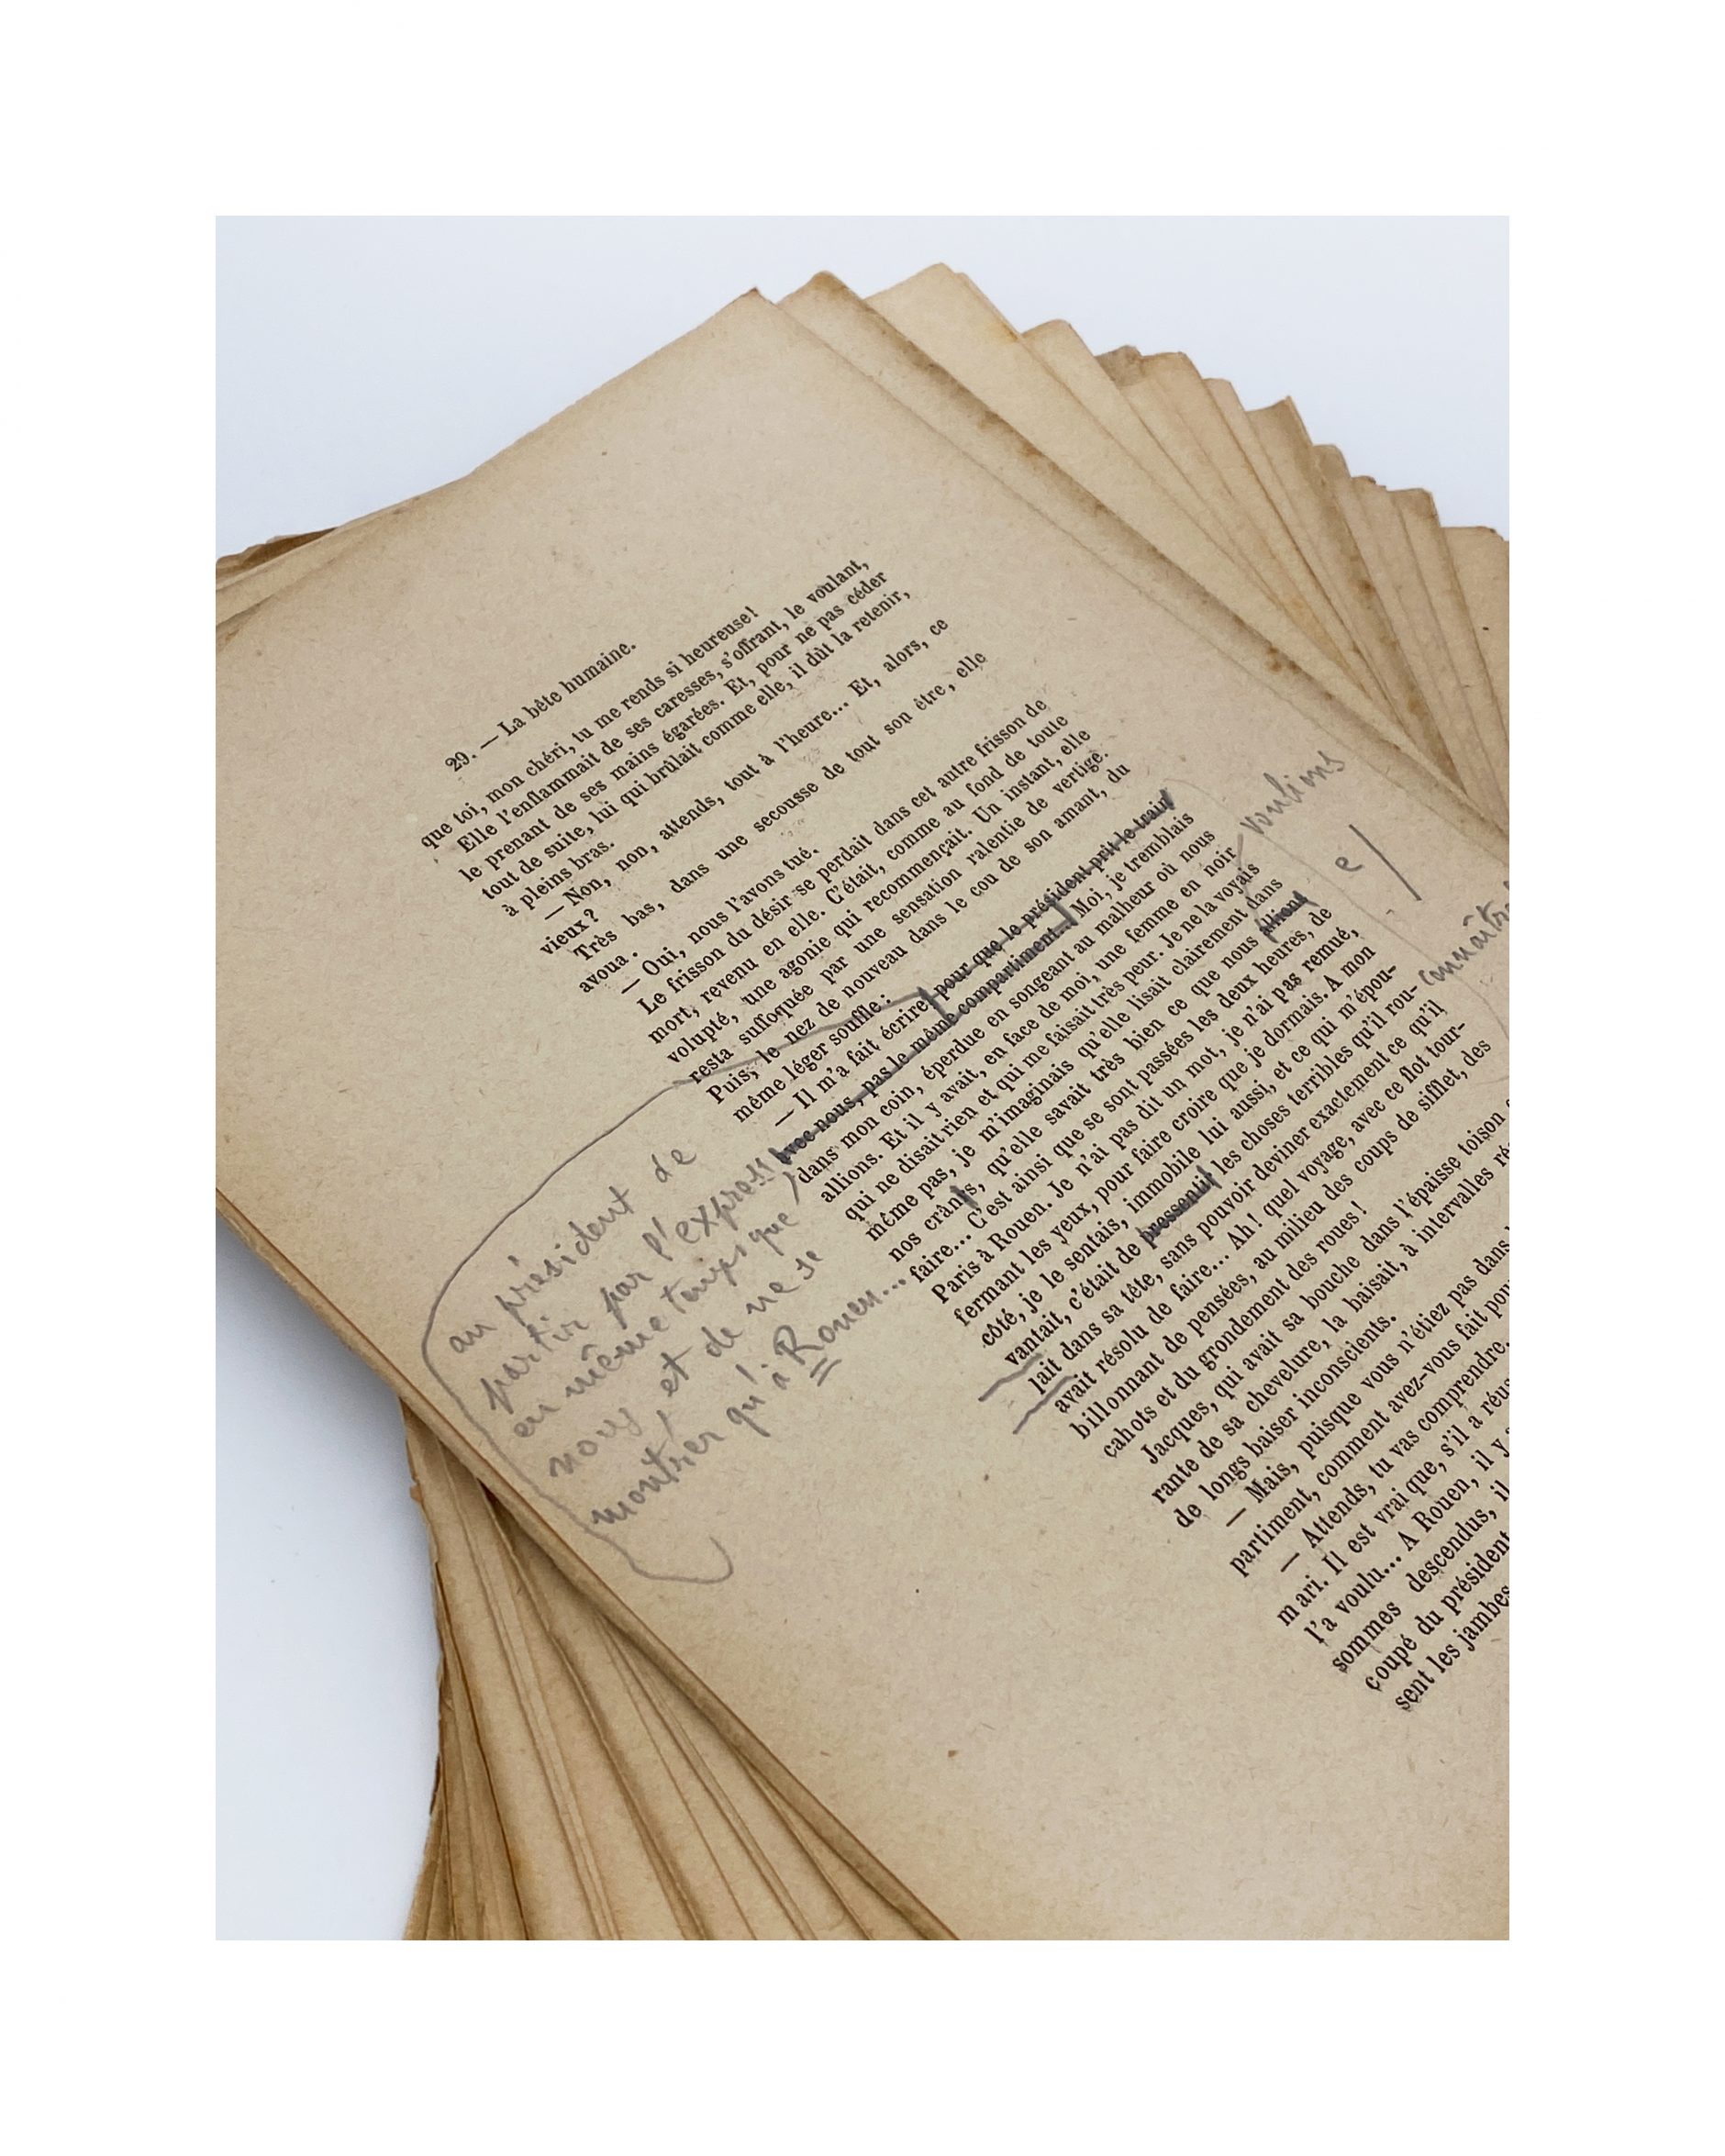 29. — La bête humaine.
que toi, mon chéri, tu me rends si heureuse!
Elle l'enflammait de ses caresses, s'offrant, le voulant,
le prenant de ses mains égarées. Et, pour ne pas céder
tout de suite, lui qui brûlait comme elle, il dût la retenir,
à pleins bras.
— Non, non, attends, tout à l'heure... Et, alors, ce
vieux?
Très bas, dans une secousse de tout son être, elle
avoua.
— Oui, nous l'avons tué.
Le frisson du désir se perdait dans cet autre frisson de
mort, revenu en elle. C'était, comme au fond de toute
volupté, une agonie qui recommençait. Un instant, elle
resta suffoquée par une sensation ralentie de vertige.
Puis, le nez de nouveau dans le cou de son amant, du
même léger souffle:
— Il m'a fait écrire pour que le président prit le train
avec nous, pas le même compartiment... Moi, je tremblais
dans mon coin, éperdue en songeant au malheur où nous
allions. Et il y avait, en face de moi, une femme en noir
qui ne disait rien et qui me faisait très peur. Je ne la voyais
même pas, je m'imaginais qu'elle lisait clairement dans
nos crânes, qu'elle savait très bien ce que nous allions
faire... C'est ainsi que se sont passées les deux heures, de
Paris à Rouen. Je n'ai pas dit un mot, je n'ai pas remué,
fermant les yeux, pour faire croire que je dormais. A mon
côté, je le sentais, immobile lui aussi, et ce qui m'épou-
vantait, c'était de pressentir les choses terribles qu'il rou-
lait dans sa tête, sans pouvoir deviner exactement ce qu'il
avait résolu de faire... Ah! quel voyage, avec ce flot tour-
billonnant de pensées, au milieu des coups de sifflet, des
cahots et du grondement des roues!
Jacques, qui avait sa bouche dans l'épaisse toison
rante de sa chevelure, la baisait, à intervalles
de longs baiser inconscients.
— Mais, puisque vous n'étiez pas dans
partiment, comment avez-vous fait
— Attends, tu vas comprendre.
mari. Il est vrai que, s'il a
l'a voulu... A Rouen, il y
sommes descendus, il
coupé du président
sent les jambes
au président de
partir par l'express
en même temps que
nous, et de ne se
montrer qu'à Rouen...
voulions
e